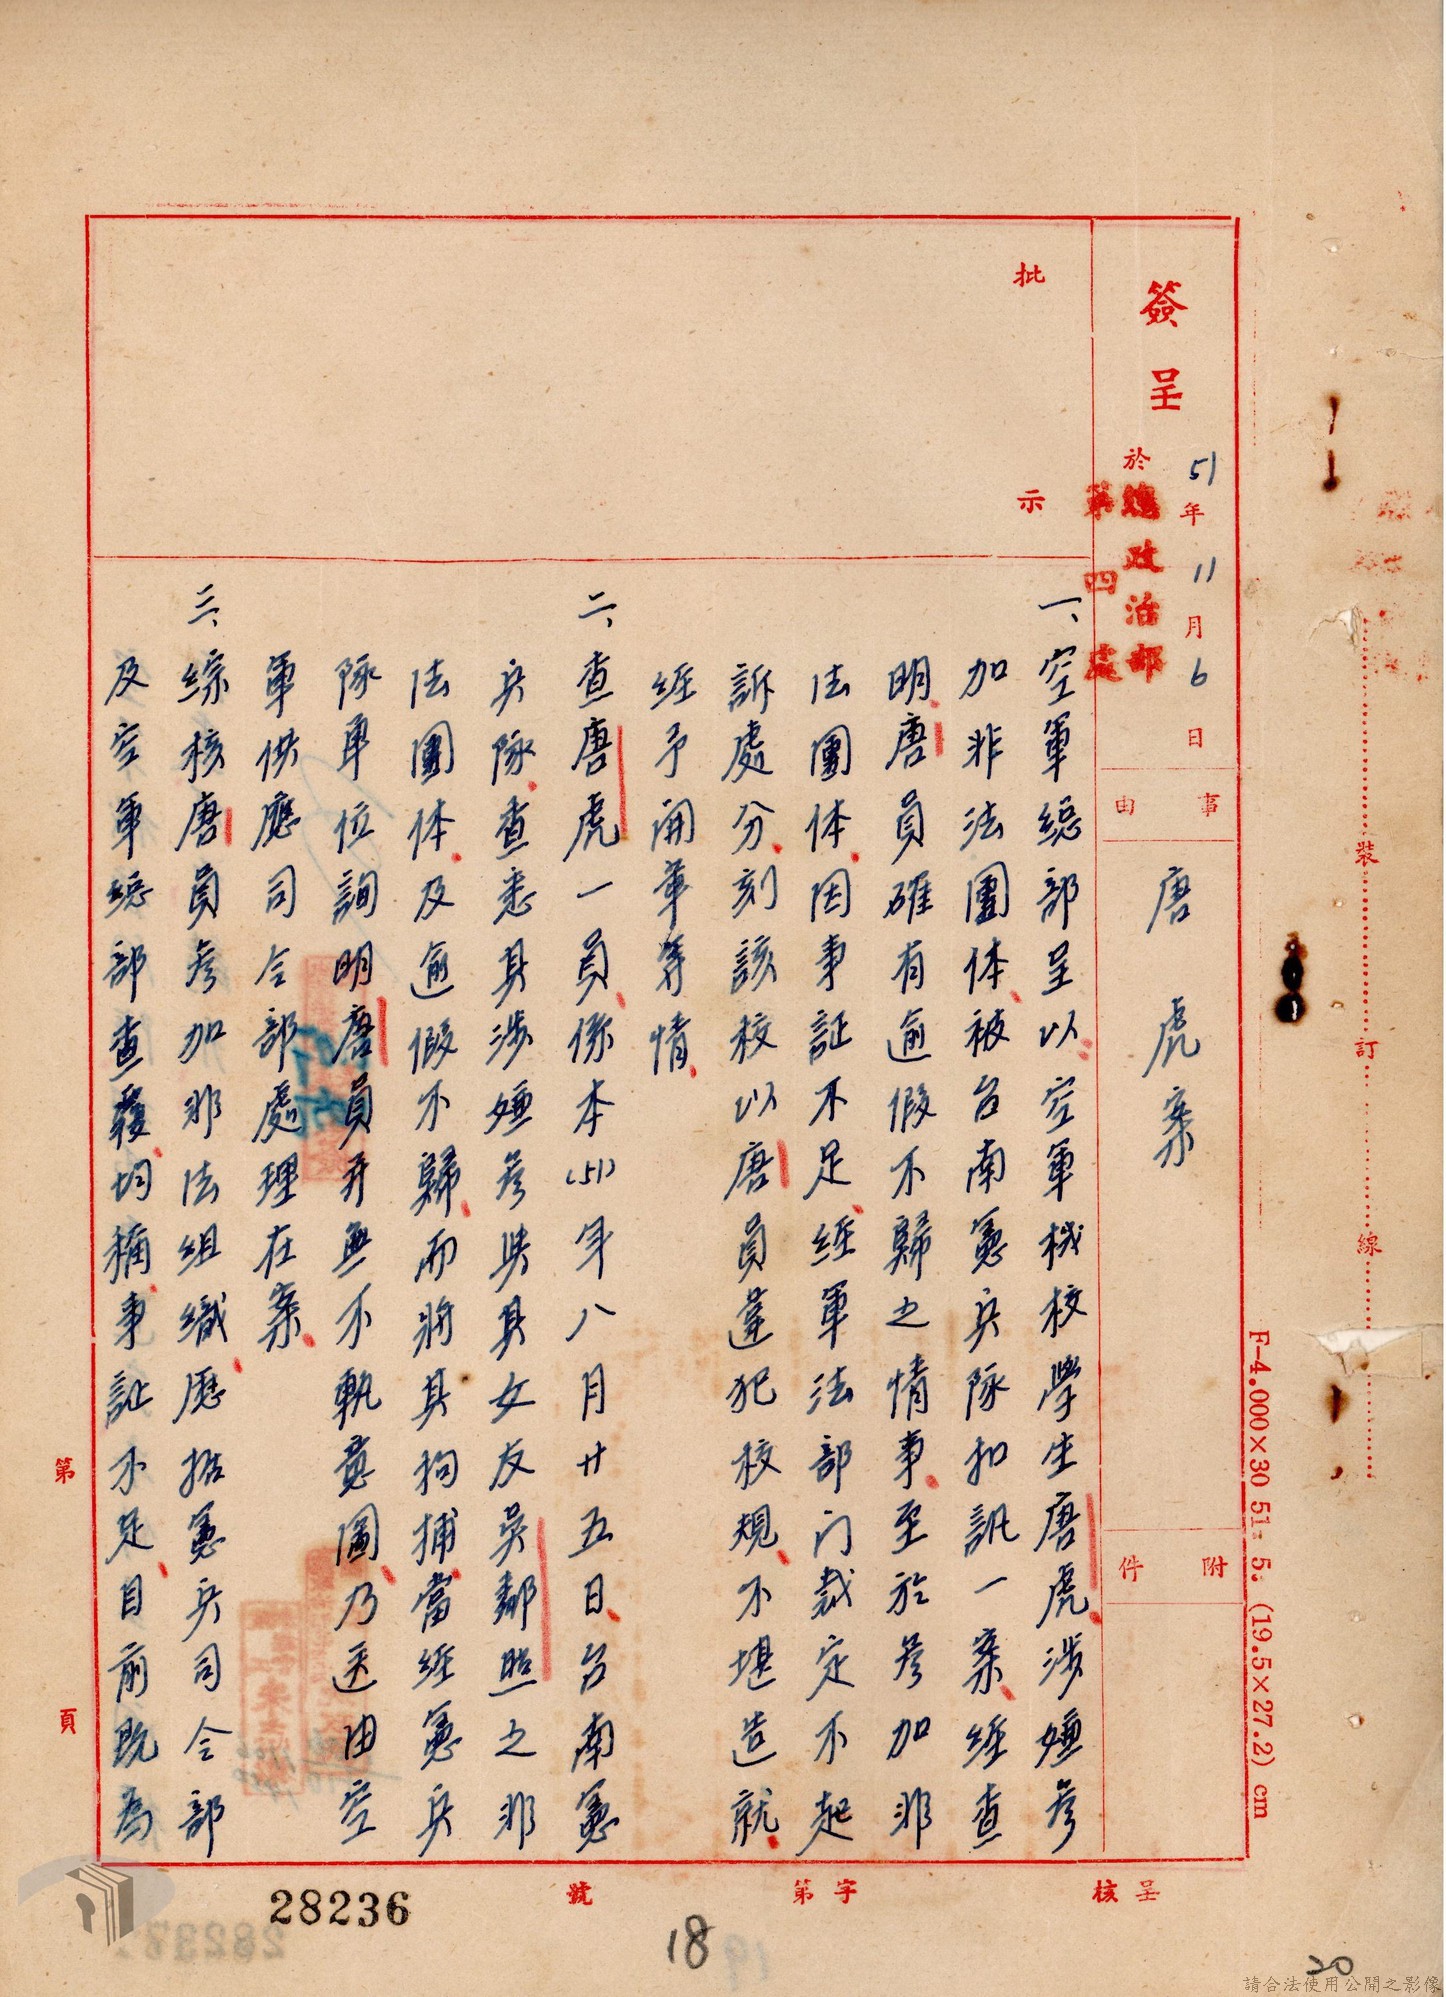 簽呈
51年11月6日
於總政治部
第四處
事由
唐虎案
附件
批示
一、空軍總部呈以空軍機校學生唐虎涉嫌參
加非法團体被台南憲兵隊扣訊一案經查
明唐員確有逾假不歸之情事至於參加非
法團体因事証不足經軍法部门裁定不起
訴處分刻該校以唐員違犯校規不堪造就
經予開革等情
二、查唐虎一員係本(51)年八月廿五日台南憲
兵隊查悉其涉嫌參與其女友吳鄰照之非
法團体及逾假不歸而將其拘捕當經憲兵
隊單位詢明唐員并無不軌意圖乃送由空
軍供應司令部處理在案
三、綜核唐員參加非法組織歷據憲兵司令部
及空軍總部查覆均稱事証不足目前既為
裝訂線
F-4.000×30 51. 5. (19.5×27.2) cm
第 頁
呈核
字第 號
28236
18
20
請合法使用公開之影像